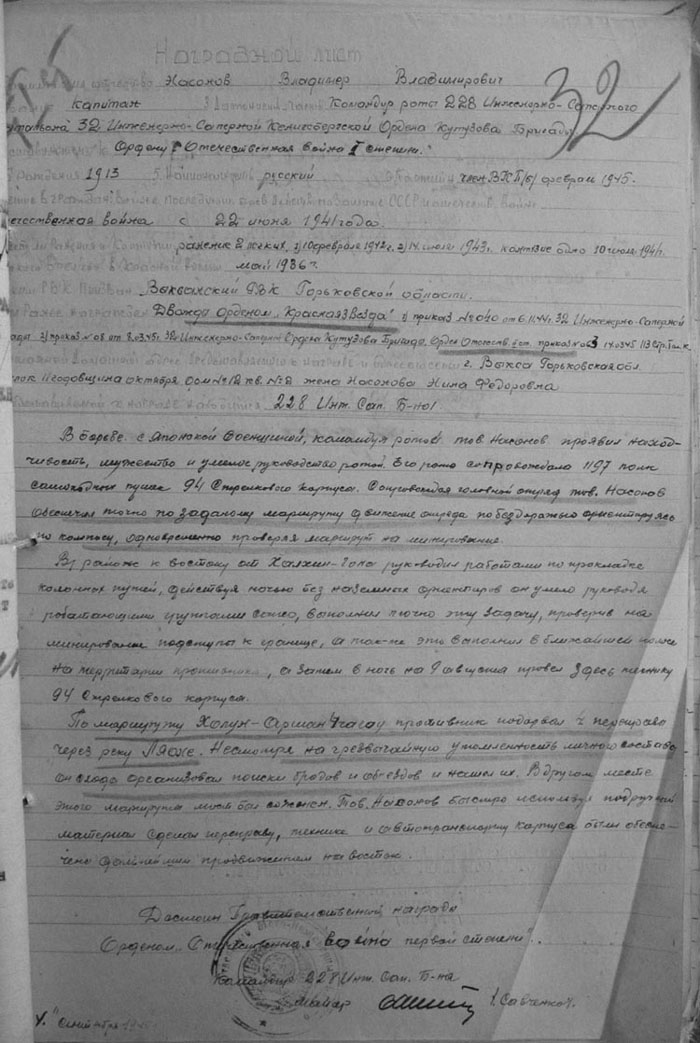 Наградной лист
32
Насонов Владимир Владимирович
капитан Командир роты 228 Инженерно-Саперного
32 Инженерно-Саперной Кенигсбергской Ордена Кутузова Бригады
Ордену Отечественная война I степени.
1913 русский член ВКП/б/ февраль 1945.
война с 22 июня 1941 года.
14 июля 1943г. 10 июля 1944г.
май 1936 г.
РВК Горьковской области.
Дважды орденом "Красная Звезда" 1) приказ №040 от 6.11.44г. 32 Инженерно-Саперной
2) приказ №08 от 32 Инженерно-Саперн Ордена Кутузова Бригада, Орден Отечеств. приказ №03 14.03.45 113 Стр.
г. Выкса Горьковская обл.
октября дом №12 кв. №2 жена Насонова Нина Федоровна
228 Инж. Сап. Б-н
В борьбе с Японской Военщиной, командуя ротой тов. Насонов проявил наход-
чивость, мужество и умелое руководство ротой. Его рота сопровождала 1197 полк
самоходных пушек 94 Стрелкового Корпуса. Сопровождая головной отряд тов. Насонов
обеспечил точно по заданому маршруту движение отряда по бездорожью ориентируясь
по компасу, одновременно проверяя маршрут на минирование.
В районе к востоку от Халхин-Гола руководил работами по прокладке
колонных путей, действуя ночью без наземных ориентиров он умело руководя
работающими группами выполнил точно эту задачу, проверив на
минирование подступы к границе, а так-же это выполнил в ближайшей полосе
на территории противника, а затем в ночь на 9 августа провел здесь технику
94 Стрелкового корпуса.
По маршруту Халун-Аршан противник подорвал 4 переправы
через реку Несмотря на чрезвычайную утомленность личного состава
он организовал поиски бродов и объездов и нашел их. В другом месте
этого маршрута мост был сожжен. Тов. Насонов быстро используя подручный
материал сделал переправу, техника и автотранспорт корпуса были обеспе-
чены дальнейшим продвижением на восток.
Достоин Правительственной награды
Орденом "Отечественная война первой степени".
Командир 228 Инж. Сап. Б-на
майор /Савченко/.
Сентября 1945